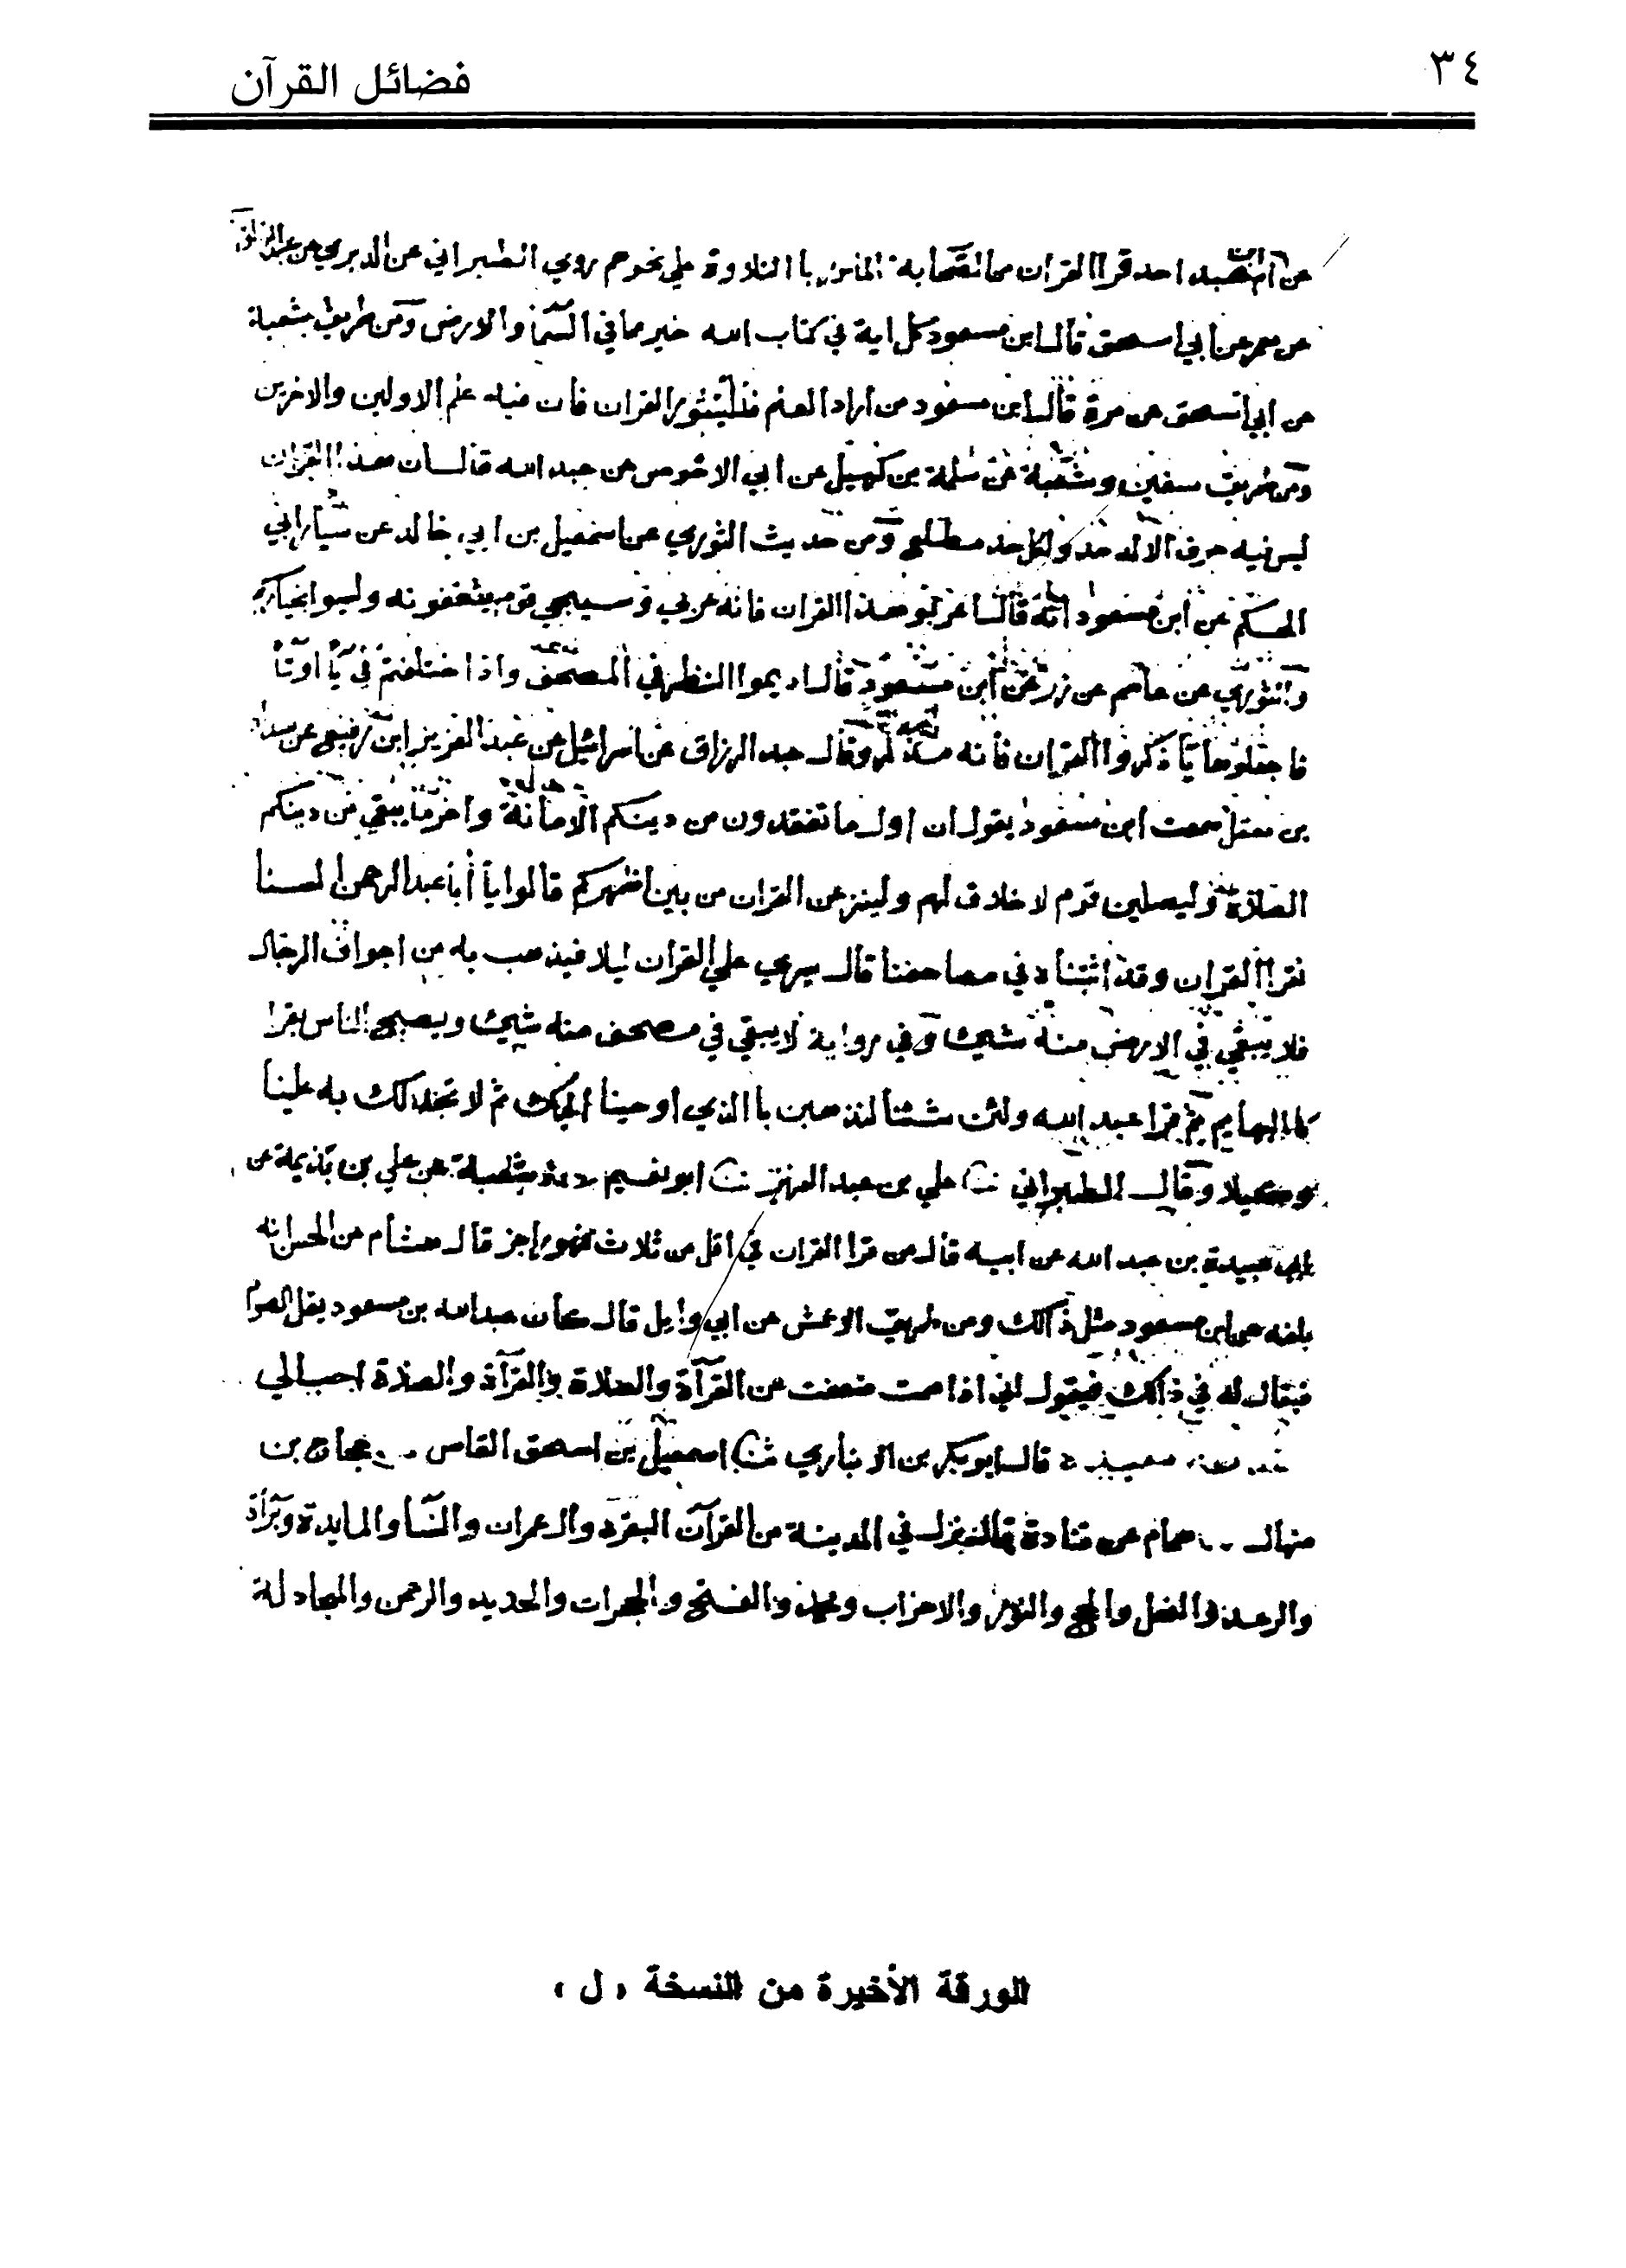 ٣٤
فضائل القرآن
عن ابن ام عبد احد قرا القران من الصحابة المامور باالتلاوة علي نحوهم روي الطبراني عن الدبري عن عبد الرزاق
عن معمر عن ابي اسحق قال ابن مسعود كل اية في كتاب الله خير مما في السما والارض ومن طريق شعبة
عن ابي اسحق عن مرة قال ابن مسعود من اراد العلم فليثور القران فان فيه علم الاولين والاخرين
ومن طريق سفين وشعبة عن سلمة بن كهيل عن ابي الاحوص عن عبد الله قال ان هذا القران
ليس فيه حرف الا له حد ولكل حد مطلع ومن حديث الثوري عن اسمعيل بن ابي خالد عن سيار ابي
الحكم عن ابن مسعود انه قال اعربوا هذا القران فانه عربي وسيجي قوم يثقفونه وليسوا بخياركم
والثوري عن عاصم عن زر عن ابن مسعود قال اديموا النظر في المصحف واذا اختلفتم في يا او تا
فاجعلوها يا ذكروا القران فانه مذكر وقال عبد الرزاق عن اسرائيل عن عبد العزيز ابن رفيع عن شداد
بن معقل سمعت ابن مسعود يقول ان اول ما تفقدون من دينكم الامانة واخر ما يبقي من دينكم
الصلاة وليصلين قوم لا خلاق لهم ولينزعن القران من بين اظهركم قالوا يا أبا عبد الرحمن السنا
نقرا القران وقد اثبتناه في مصاحفنا قال يسري علي القران ليلا فيذهب به من اجواف الرجال
فلا يبقي في الارض منه شيئ وفي رواية لا يبقي في مصحف منه شيئ ويصبح الناس فقرا
كالبهايم ثم قرا عبد الله ولئن شئنا لنذهبن باالذي اوحينا اليك ثم لا تجد لك به علينا
وكيلا وقال الطبراني ثنا علي بن عبد العزيز ثنا ابو نعيم شعبة عن علي بن بذيمة عن
ابي عبيدة بن عبد الله عن ابيه قال من قرا القران في اقل من ثلاث فهو راجز قال هشام عن الحسن انه
بلغه عن ابن مسعود مثل ذالك ومن طريق الاعمش عن ابي وايل قال كان عبد الله بن مسعود يقل الصوم
فيقال له في ذالك فيقول اني اذا صمت ضعفت عن القرآة والصلاة والقرآة والصلاة احب الي
قال ابو بكر بن الانباري ثنا اسمعيل بن اسحق القاضي حجاج بن
منهال همام عن قتادة قال نزل في المدينة من القرآن البقرة وال عمران والنسا والمايدة وبرأة
والرعد والنحل والحج والنور والاحزاب ومحمد والفتح والحجرات والحديد والرحمن والمجادلة
الورقة الأخيرة من النسخة « ل »